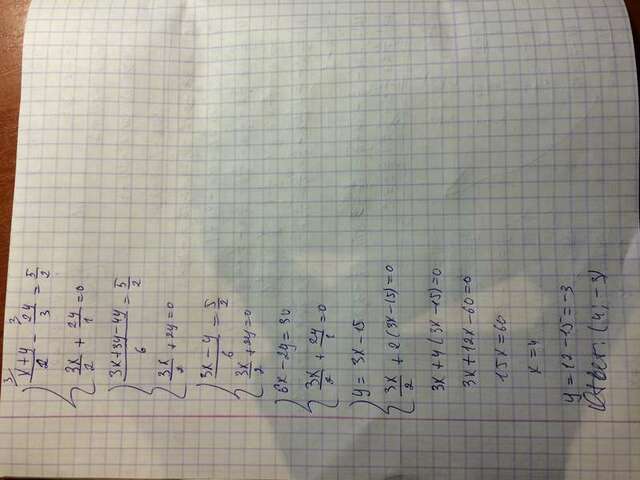 { ³⁄ (x+y)/2 - ³⁄ 2y/3 = 5/2
3x/2 + 2y/1 = 0
{ (3x+3y-4y)/6 = 5/2
3x/2 + 2y = 0
{ (3x-y)/6 = 5/2
3x/2 + 2y = 0
{ 6x - 2y = 30
3x/2 + 2y/1 = 0
{ y = 3x - 15
3x/2 + 2(3x-15) = 0
3x + 4(3x-15) = 0
3x + 12x - 60 = 0
15x = 60
x = 4
y = 12 - 15 = -3
Ответ: (4, -3)